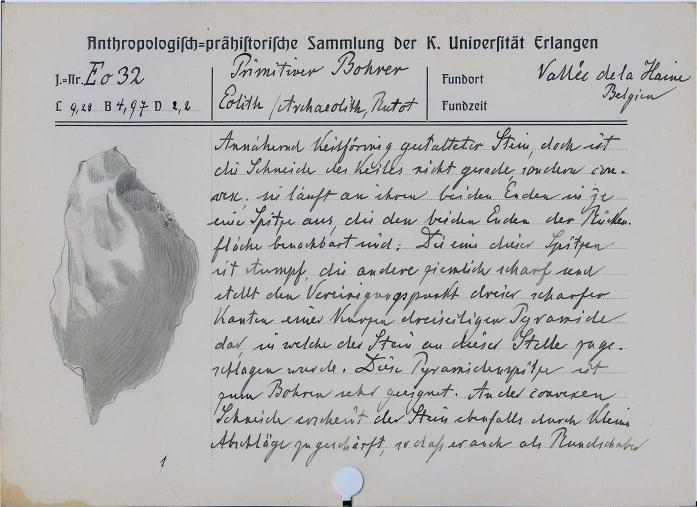 Anthropologisch=prähistorische Sammlung der K. Universität Erlangen
J.=Nr. Eo 32
L 9,28 B 4,97 D 2,2
Primitiver Bohrer
Eolith / Archaeolith, Rutot
Fundort Vallée de la Haine
Belgien
Fundzeit
Annähernd keilförmig gestalteter Stein, doch ist
die Schneide des Keiles nicht gerade, sondern con-
vex; sie läuft an ihren beiden Enden in je
eine Spitze aus, die den beiden Enden der Rücken-
fläche benachbart sind: Die eine dieser Spitzen
ist stumpf, die andere ziemlich scharf und
stellt den Vereinigungspunkt dreier scharfer
Kanten einer kurzen dreiseitigen Pyramide
dar, in welche der Stein an dieser Stelle zuge-
schlagen wurde. Diese Pyramidenspitze ist
zum Bohren sehr geeignet. An der convexen
Schneide erscheint der Stein ebenfalls durch kleine
Abschläge zugeschärft, so daß er auch als Rundschaber
1